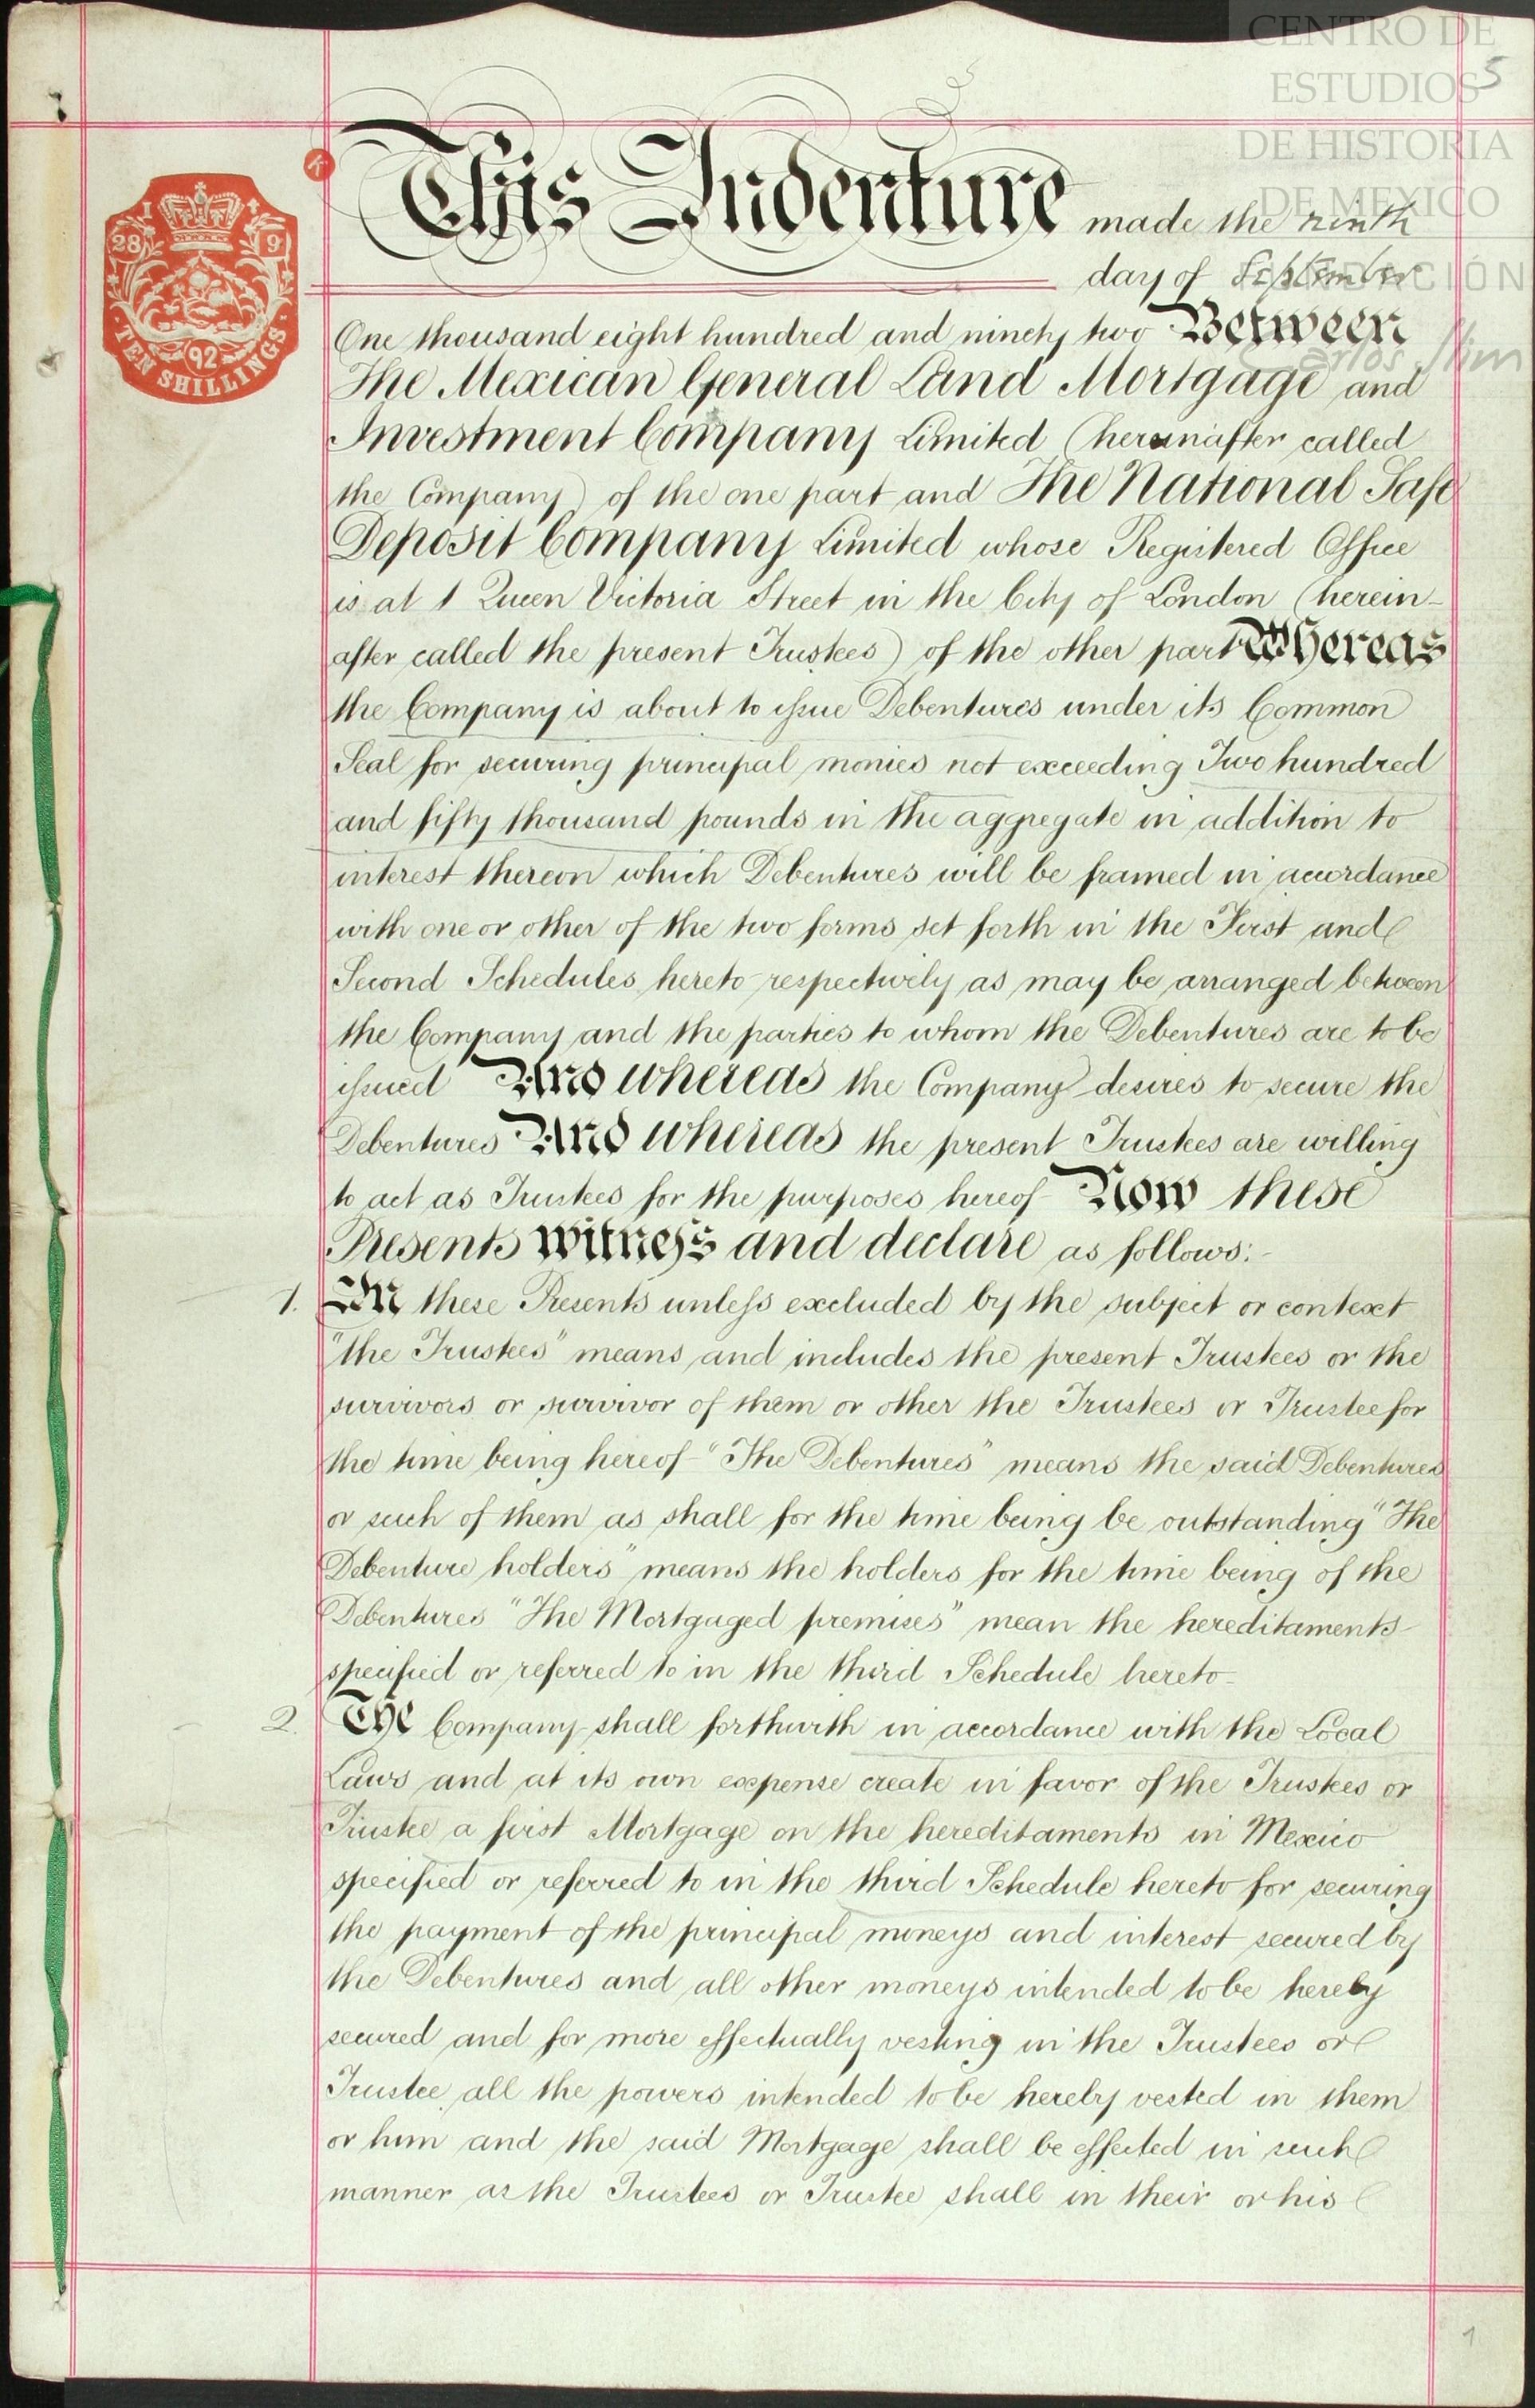 CENTRO DE
ESTUDIOS
DE HISTORIA
DE MEXICO
FUNDACIÓN
Carlos Slim
5
K
1 4
28 9
92
TEN SHILLINGS
This Indenture made the ninth
day of September
One thousand eight hundred and ninety two Between
The Mexican General Land Mortgage and
Investment Company Limited (hereinafter called
the Company) of the one part and The National Safe
Deposit Company Limited whose Registered Office
is at 1 Queen Victoria Street in the City of London (herein-
after called the present Trustees) of the other part Whereas
the Company is about to issue Debentures under its Common
Seal for securing principal monies not exceeding Two hundred
and fifty thousand pounds in the aggregate in addition to
interest thereon which Debentures will be framed in accordance
with one or other of the two forms set forth in the First and
Second Schedules hereto respectively as may be arranged between
the Company and the parties to whom the Debentures are to be
issued And whereas the Company desires to secure the
Debentures And whereas the present Trustees are willing
to act as Trustees for the purposes hereof Now these
Presents witness and declare as follows:-
1. In these Presents unless excluded by the subject or context
"the Trustees" means and includes the present Trustees or the
survivors or survivor of them or other the Trustees or Trustee for
the time being hereof "The Debentures" means the said Debentures
or such of them as shall for the time being be outstanding "The
Debenture holders" means the holders for the time being of the
Debentures "The Mortgaged premises" mean the hereditaments
specified or referred to in the third Schedule hereto
2. The Company shall forthwith in accordance with the Local
Laws and at its own expense create in favor of the Trustees or
Trustee a first Mortgage on the hereditaments in Mexico
specified or referred to in the third Schedule hereto for securing
the payment of the principal moneys and interest secured by
the Debentures and all other moneys intended to be hereby
secured and for more effectually vesting in the Trustees or
Trustee all the powers intended to be hereby vested in them
or him and the said Mortgage shall be effected in such
manner as the Trustees or Trustee shall in their or his
1